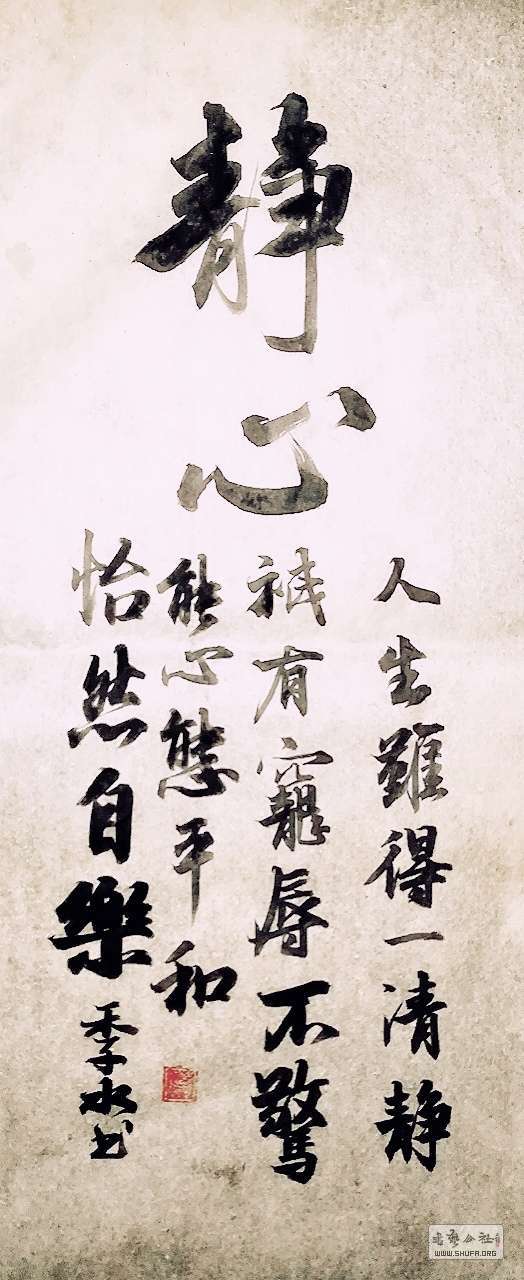 静心
人生雖得一清静
祇有寵辱不驚
能心態平和
怡然自樂
季水书
WWW.SHUFA.ORG